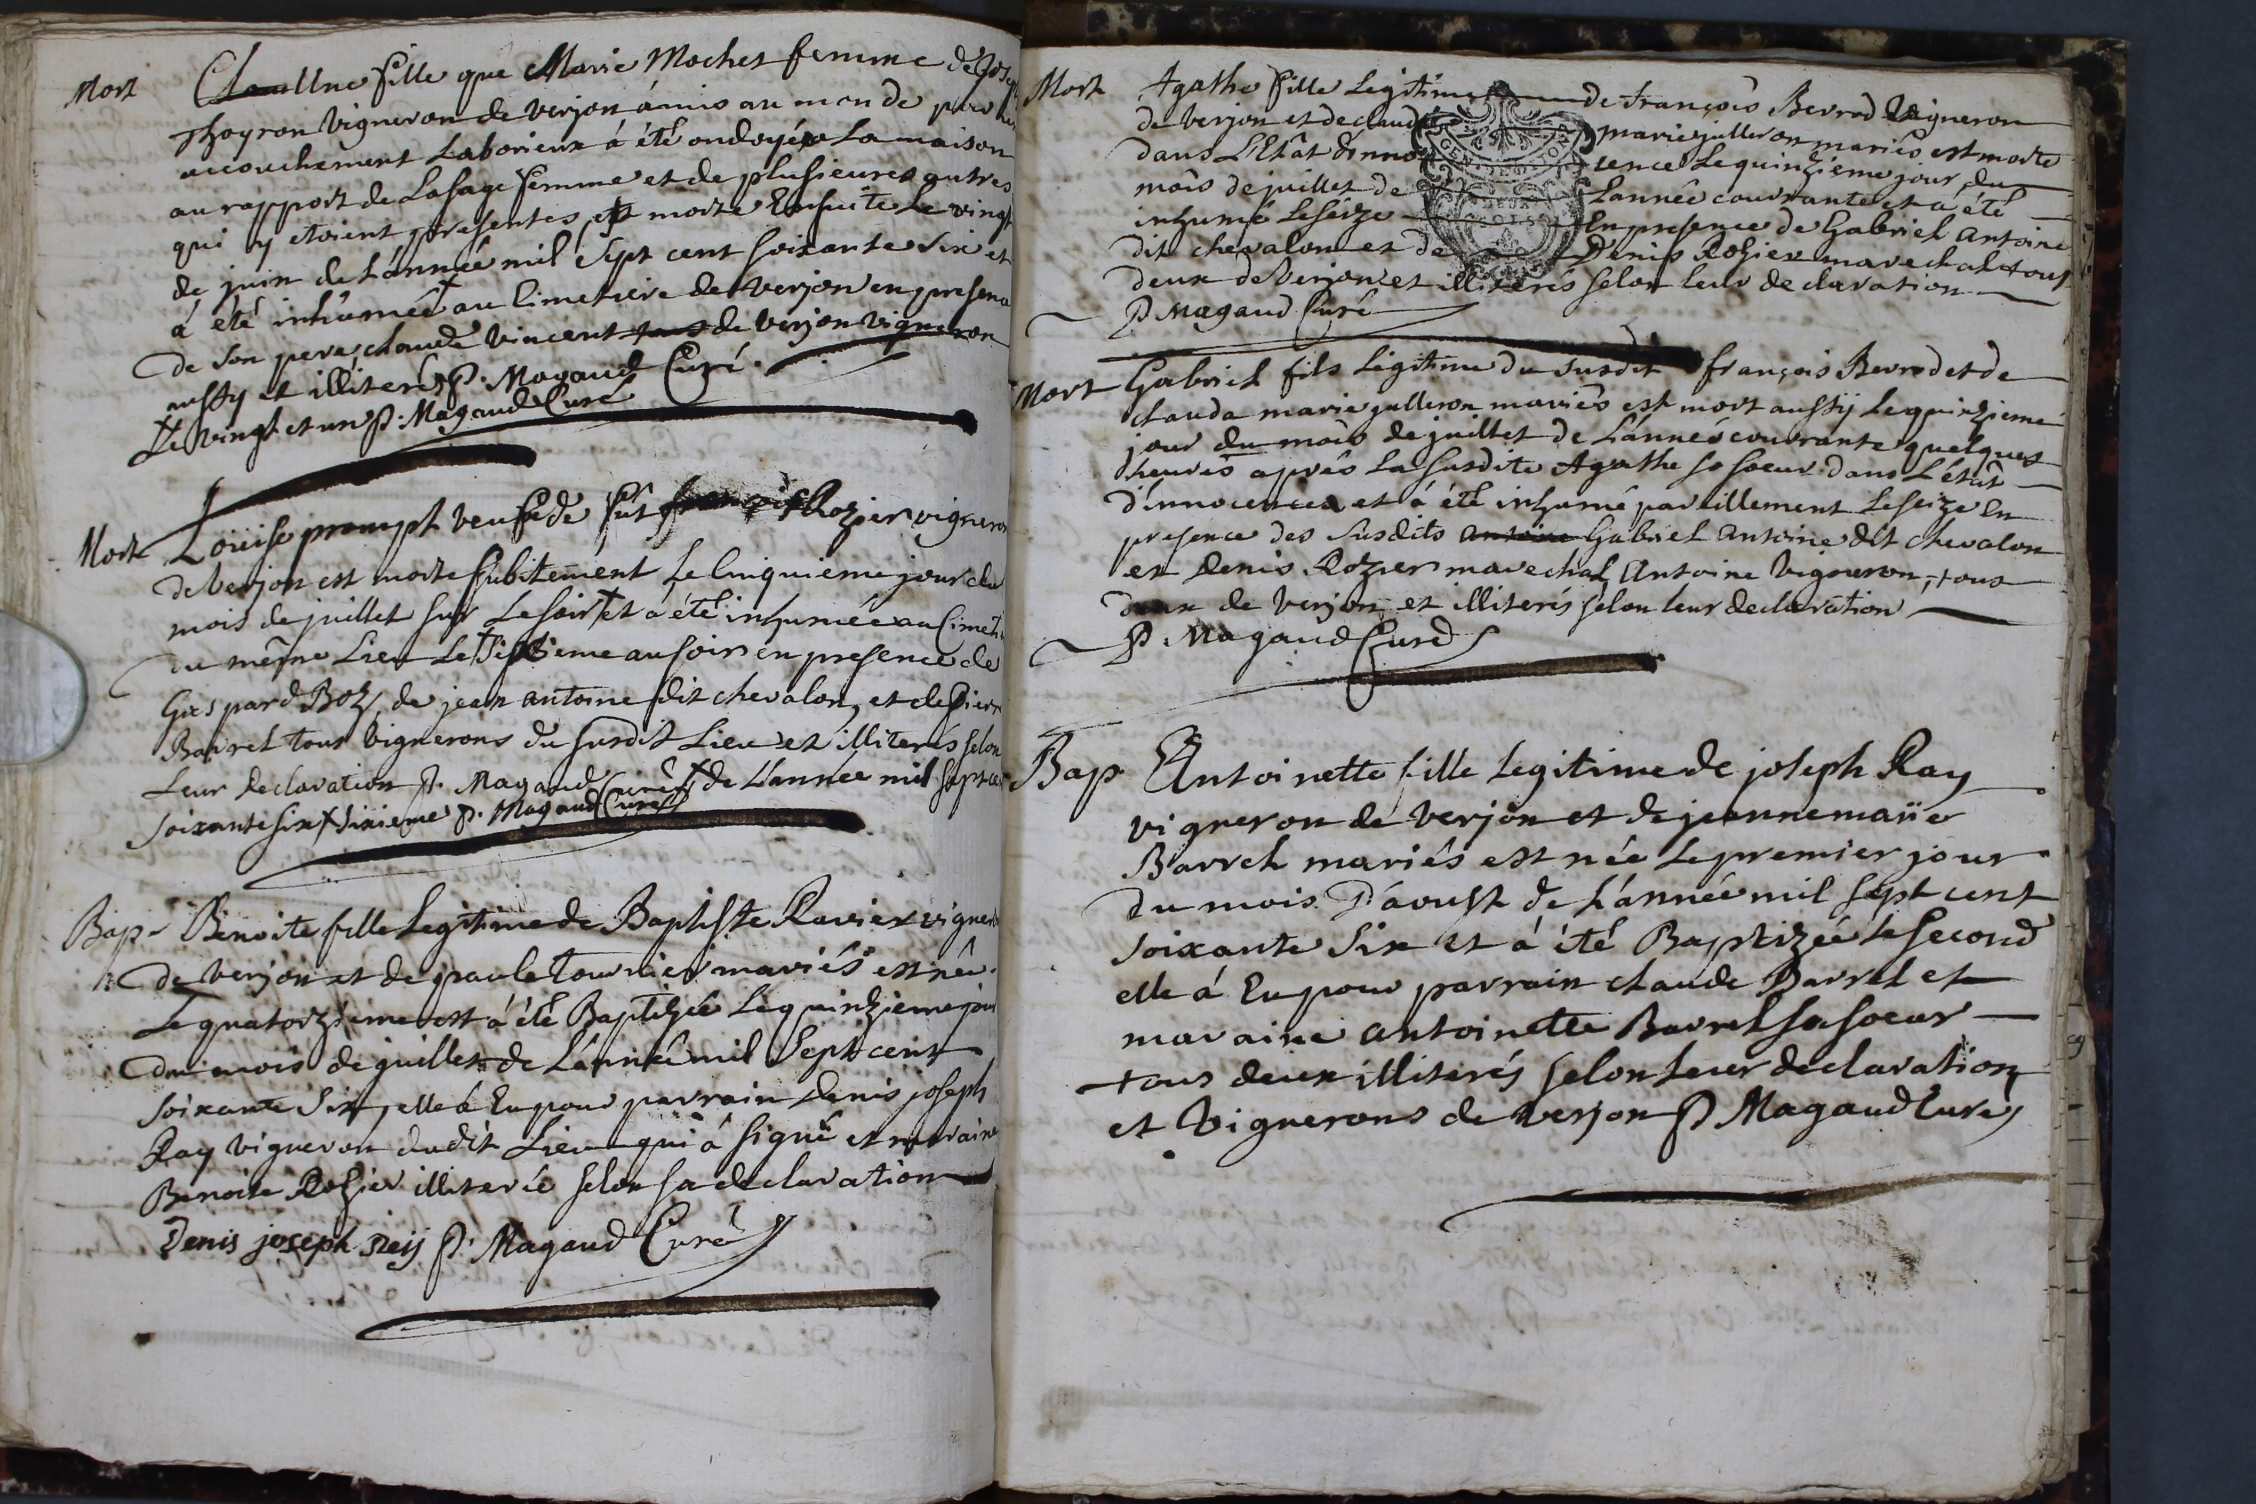 Mort
Une fille que Marie Mochet femme de
Thoyron Vigneron de Verjon à mis au monde par
accouchement Laborieux à été ondoyée a La maison
au rapport de La sage femme et de plusieures autres
qui y etoient presentes, est morte Ensuite Le vingt
de juin de L'année mil Sept cent soixante Six et
à été inhumée + au Cimetiere de Verjon en presence
de son pere, claude Vincent de Verjon vigneron
aussy et illiteré, P. Magaud Curé.
+ Le Vingt et un P. Magaud Curé
Mort
Loüise prompt veufve de fût françois Rozier vigneron
de Verjon est morte subitement Le Cinquieme jour du
mois de juillet sur Le soir et à été inhumée au
du même Lieu Le + au soir en presence de
Gaspard Boz, de jean antoine dit chevalon, et de
Barrel tous Vignerons du susdit Lieu et illiterés selon
Leur declaration P. Magaud Curé + de L'année mil sept
soixante six + Sixieme P. Magaud Curé
Bap.
Benoite fille Legitime de Baptiste Ravier
de Verjon et de paule tournier mariés est née
Le quatorzieme et à été Baptizée Le quinzieme jour
du mois de juillet de L'année mil Sept cent
soixante Six, elle à Eu pour parrain Denis joseph
Ray vigneron dudit Lieu qui à signé et maraine
Benoite Rozier illiterée selon sa declaration
Denis joseph Reij P. Magaud Curé
Mort
Agathe fille Legitime de françois Berrod Vigneron
de Verjon et de claude marie julleron mariés est morte
dans L'Etât d'innocence Le quinzieme jour du
mois de juillet de L'année courrante et a été
inhumé Le séize En presence de Gabriel antoine
dit chevalon et de Denis Rozier marechal tous
deux de Verjon et illiterés selon leur declaration
P Magaud Curé
GEN DE DIJON
DEUX
SOLS
Mort
Gabriel fils Légitime du susdit françois Berrod et de
clauda marie julleron mariés est mort aussÿ Le quinzieme
jour du mois de juillet de L'année courrante quelques
heures aprés La susdite Agathe sa soeur dans L'état
d'innocence et à été inhumé pareillement Le seize En
presence des susdits antoine Gabriel antoine dit chevalon
et Denis Rozier marechal, Antoine Vigneron, tous
deux de Verjon et illiterés selon leur declaration
P. Magaud Curé
Bap.
Antoinette fille Legitime de joseph Ray
vigneron de Verjon et de jeanne marie
Barrel mariés est née Le premier jour
du mois D'áoust de L'année mil sept cent
soixante Six et à été Baptizée Le second
elle á Eu pour parrain claude Barrel et
maraine antoinette Barrel sa soeur
tous deux illiterés selon leur declaration
et Vignerons de Verjon P Magaud Curé